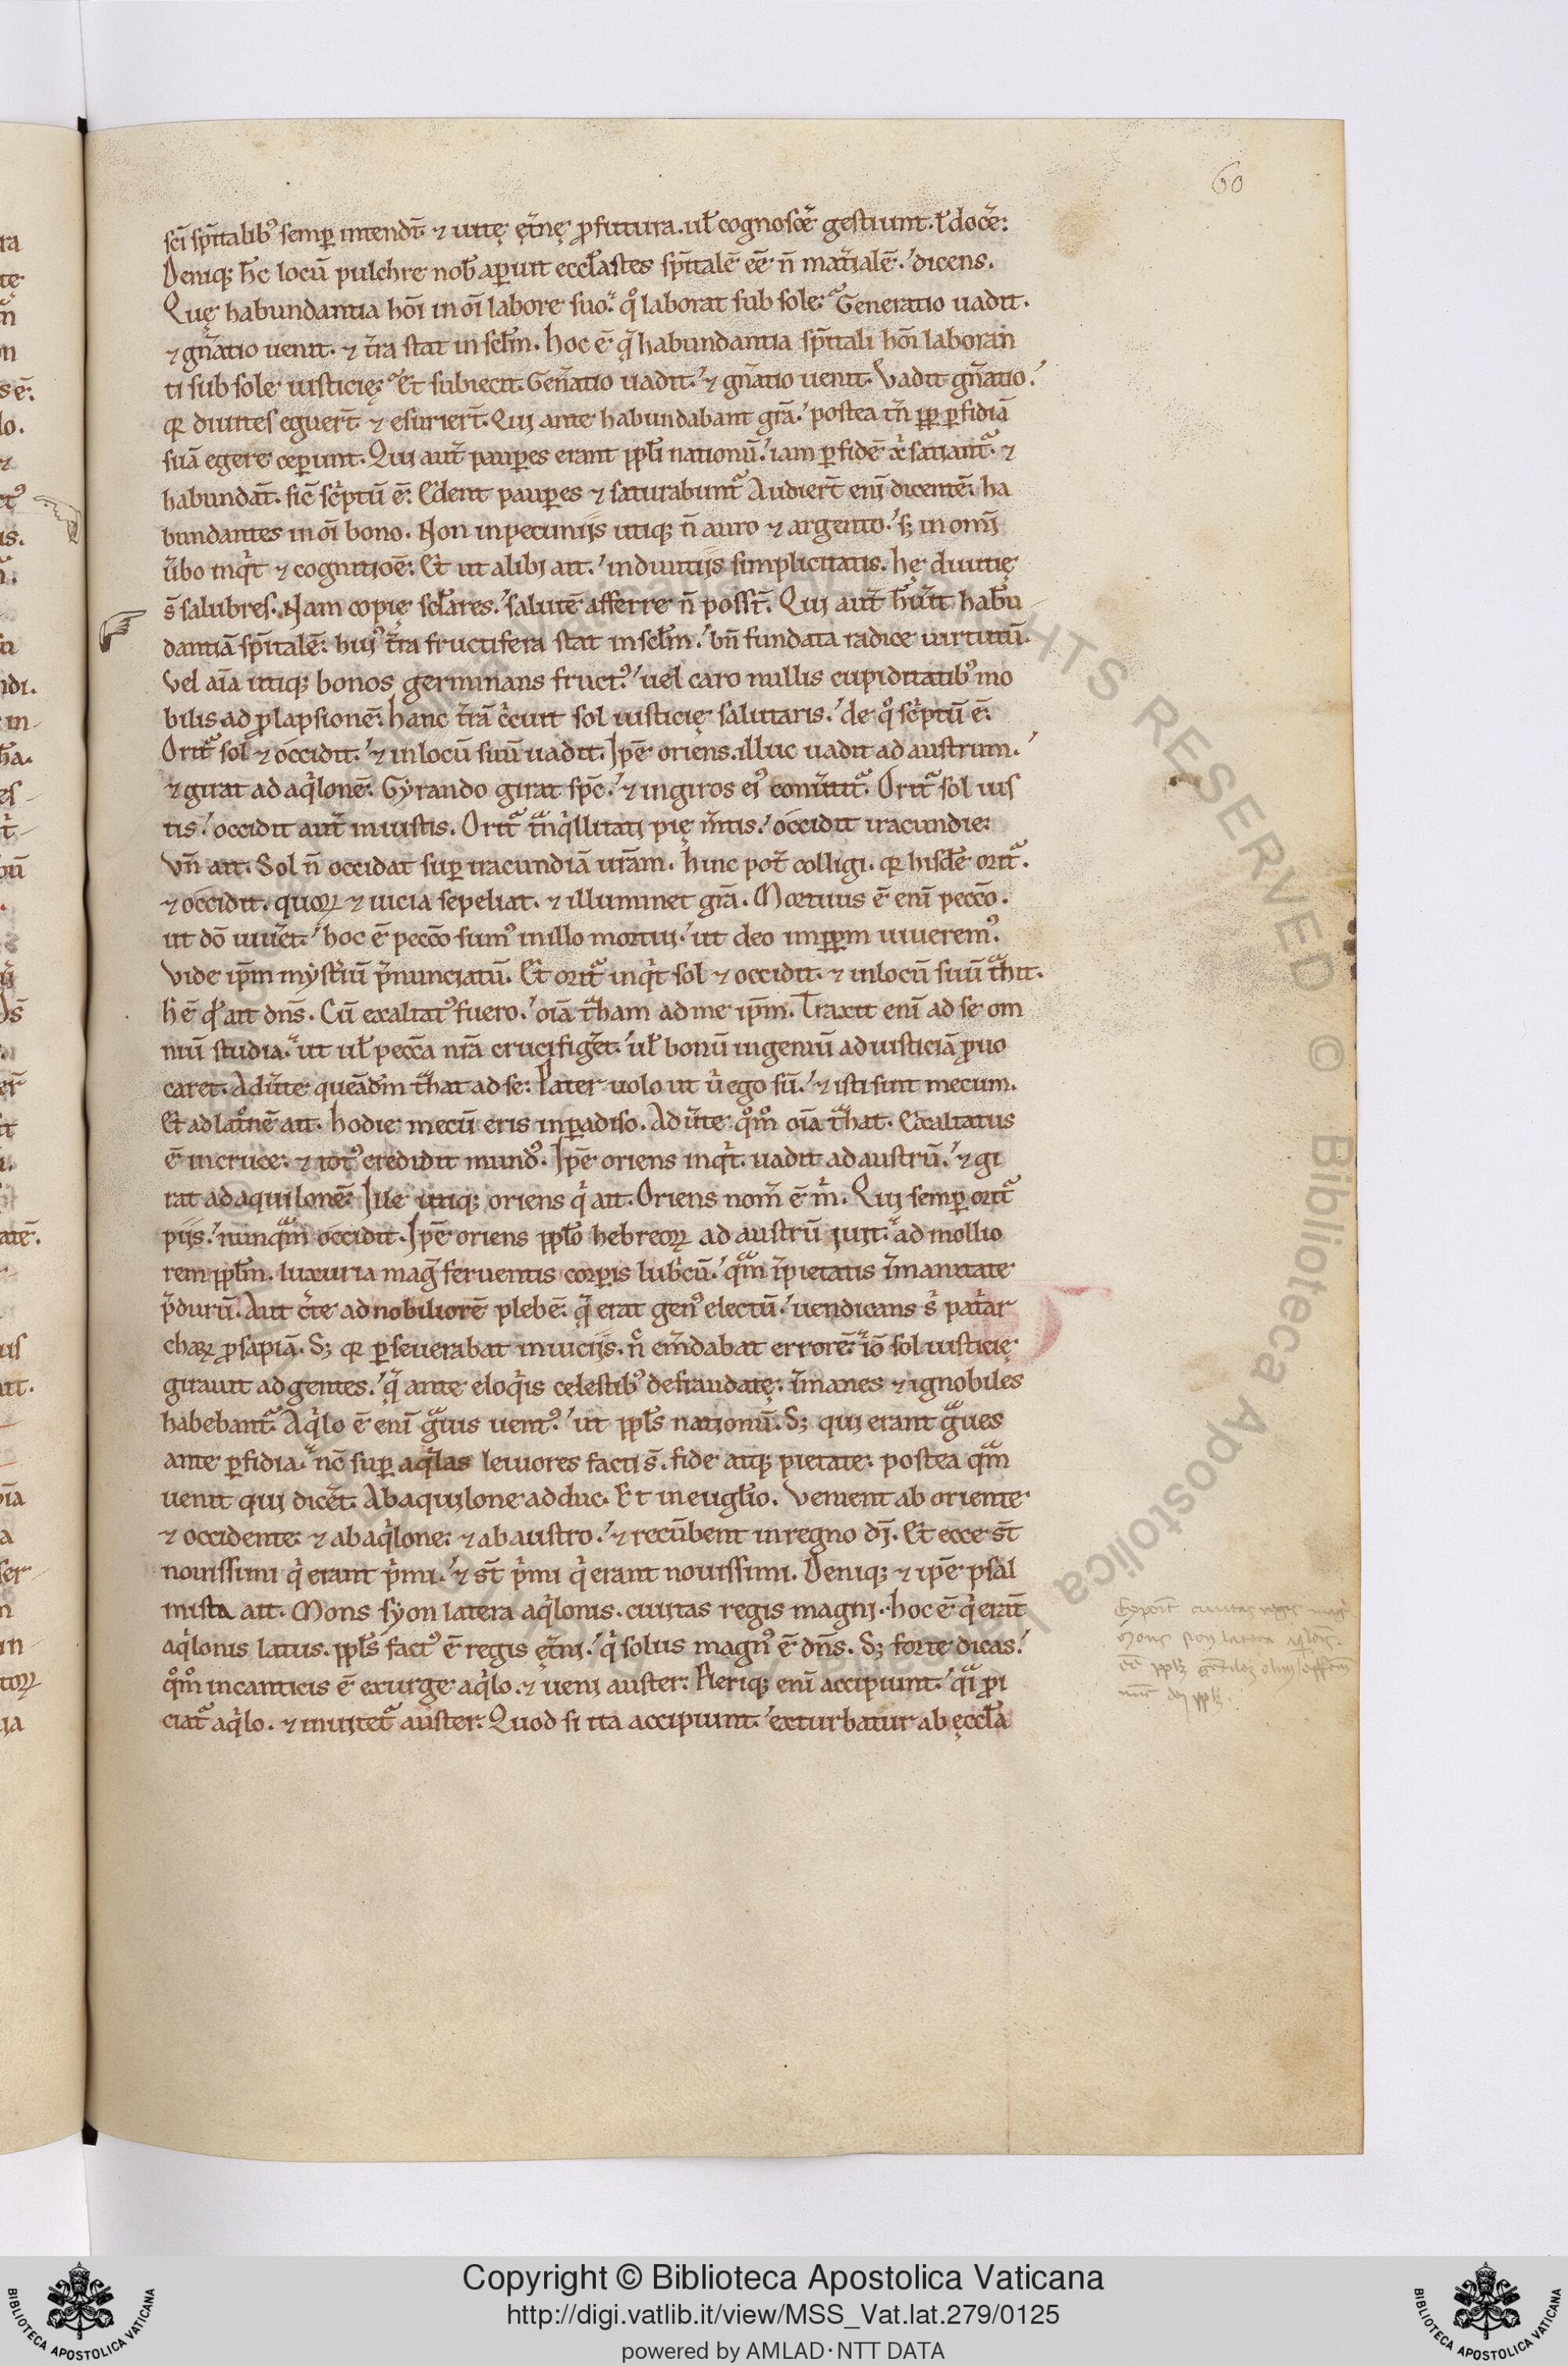 60
sc̄i sp̄italib᾽ semp̱ intendt̄ ⁊ uitę et̾nę ꝓfutura. ul̄ cognosce᷑ gestiunt. l̄ doce᷑:
Deniq; hc̄ locū pulchre nob̄ ap̱uit eccl̄astes sp̄italē eē n̄ mat᷑ialē. dicens.
Quę habundantia hōi in oī labore suo. qͦ laborat sub sole: Generatio uadit.
⁊ gn̄atio uenit. ⁊ t̄ra stat in scl̄m. hoc ē q̨ habundantia sp̄itali hōi laboran
ti sub sole iusticię: Et subiecit. Gen̄atio uadit. ⁊ gn̄atio uenit. Vadit gn̄atio.
qꝛ diuites eguert̄ ⁊ esuriert̄. Qui ante habundabant gr̄a. postea tn̄ ꝓꝑ ꝑfidiā
suā egere ceperunt. Qui aut̄ paup̱es erant ppl̄i nationū. iam ꝑ fidē xp̄i satiant᷑. ⁊
habundāt. sic̄ sc̾ptū ē: Edent paup̱es ⁊ saturabunt᷑ Audiert̄ enī dicentē: ha
bundantes in oī bono. Non in pecuniis utiq; n̄ auro ⁊ argento. s; in omī
ūbo inqͥt ⁊ cognitiōe: Et ut alibi ait. in diuitiis simplicitatis. hę diuitię
s̄ salubres. Nam copię scl̄ares. salutē afferre n̄ posst̄. Qui aut̄ hūit habū
dantiā sp̄italē: hui᾽ t̄ra fructifera stat in scl̄m. bn̄ fundata radice uirtutū.
Vel aīa utiq; bonos germinans fruct᾽. uel caro nullis cupiditatib᾽ mo
bilis ad ꝓlapsionē: hanc t̄rā c̾cuit sol iusticię salutaris. de qͦ sc̾ptū ē:
Orit᷑ sol ⁊ occidit. ⁊ in locū suū uadit. Ip̄e oriens. illuc uadit ad austrum.
⁊ girat ad aqͥlonē: Gyrando girat sp̄c. ⁊ in giros ei᾽ con̾tit᷑. Orit᷑ sol ius
tis. occidit aut̄ iniustis. Orit᷑ tᷓnqͥllitati pię m̄tis. occidit iracundie:
Vn̄ ait. Sol n̄ occidat sup̱ iracundiā ur̄am. hinc pot̄ colligi. qꝛ hisdē orit᷑.
⁊ occidit. quoꝝ ⁊ uicia sepeliat. ⁊ illuminet gr̄a. Mortuus ē enī pecc̄o.
ut dō uiu᷑et. hoc ē pecc̄o sum᾽ in illo mortui. ut deo imꝑꝑm uiuerem᾽.
Vide ip̄m myst̾iū p̄nunciatū. Et orit᷑ inqͥt sol ⁊ occidit. ⁊ in locū suū tᷓhit.
h̄ ē qd̄ ait dn̄s. Cū exaltat᾽ fuero. oīa tᷓham ad me ip̄m. Traxit enī ad se om
niū studia. ut ul̄ pecc̄a nr̄a crucifig᷑et. ul̄ bonū ingeniū ad iusticiā ꝓuo
caret. Adu᷑te queād̄m tᷓhat ad se: Pater uolo ut u̾ ego sū. ⁊ isti sint mecum.
Et ad latͦnē ait. hodie mecū eris in ꝑadiso. Adu᷑te qͦmͦ oīa tᷓhat. Exaltatus
ē in cruce: ⁊ tot᾽ credidit mund᾽. Ip̄e oriens inqͥt. uadit ad austrū. ⁊ gi
rat ad aquilonē: Ille utiq; oriens qͥ ait. Oriens nom̄ ē m̾. Qui semp̱ orit᷑
piis. nunqᷓm occidit. Ip̄e oriens ppl̄o hebreoꝝ ad austrū iuit. ad mollio
rem ppl̄m. luxuria mag̾ feruentis corp̱is lub̾cū. qᷓm ip̄ietatis īmanitate
p̄durū. Aut c᷑te ad nobiliorē plebē: q̨ erat gen᾽ electū. uendicans s̾ pat̾ar
chaꝝ ꝓsapiā. S; qꝛ ꝑseuerabat in uiciis. n̄ em̄dabat errorē: iō sol iusticię
girauit ad gentes. q̨ ante eloqͥis celestib᾽ defraudatę: īmanes ⁊ ignobiles
habebant᷑. Aqͥlo ē enī gᷓuis uent᾽. ut ppl̄s nationū. S; qui erant gᷓues
ante ꝑfidia. nc̄ sup̱ aqͥlas leuiores facti s̄. fide atq; pietate: postea qᷓm
uenit qui dic᷑et. Ab aquilone adduc. Et in eugl̄io. Venient ab oriente
⁊ occidente: ⁊ ab aqͥlone: ⁊ ab austro. ⁊ recūbent in regno dī. Et ecce st̄
nouissimi qͥ erant p̾mi. ⁊ st̄ p̾mi qͥ erant nouissimi. Deniq; ⁊ ip̄e psal
mista ait. Mons syon latera aqͥlonis. ciuitas regis magni. hoc ē qͥ erāt
aqͥlonis latus. ppl̄s fact᾽ ē regis et̾ni. qͥ solus magn᾽ ē dn̄s. S; forte dicas.
qͦmͦ in canticis ē exurge aqͥlo. ⁊ ueni auster: Pleriq; enī accipiunt. qᷓi ꝓi
ciat᷑ aqͥlo. ⁊ inuitet᷑ auster. Quod si ita accipiunt. exturbatur ab ęccl̄a
ciuitas regis
Mons syon latera aqͥlōis.